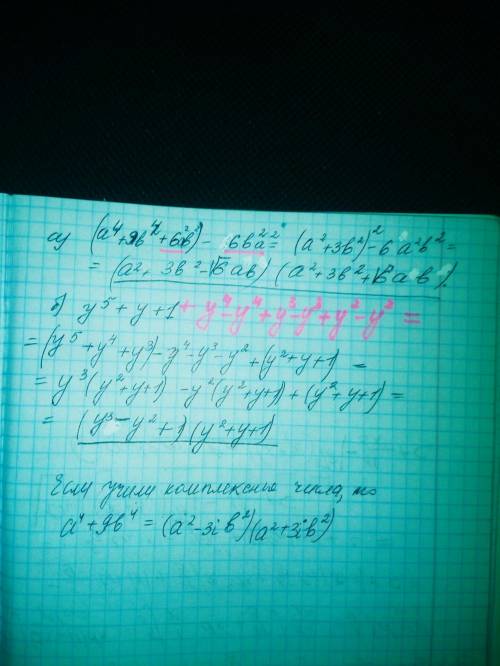 а) (a⁴+9b⁴+6a²b²) - 6b²a² = (a²+3b²)² - 6a²b² =
= (a² + 3b² - √6 ab) (a²+3b²+√6 a b).
б) y⁵ + y + 1 + y⁴ - y⁴ + y³ - y³ + y² - y² =
= (y⁵ + y⁴ + y³) - y⁴ - y³ - y² + (y²+y+1) =
= y³ (y²+y+1) - y² (y²+y+1) + (y²+y+1) =
= (y³ - y² + 1) (y²+y+1)
Если учили комплексные числа, то
a⁴ + 9b⁴ = (a² - 3i b²) (a² + 3i b²)